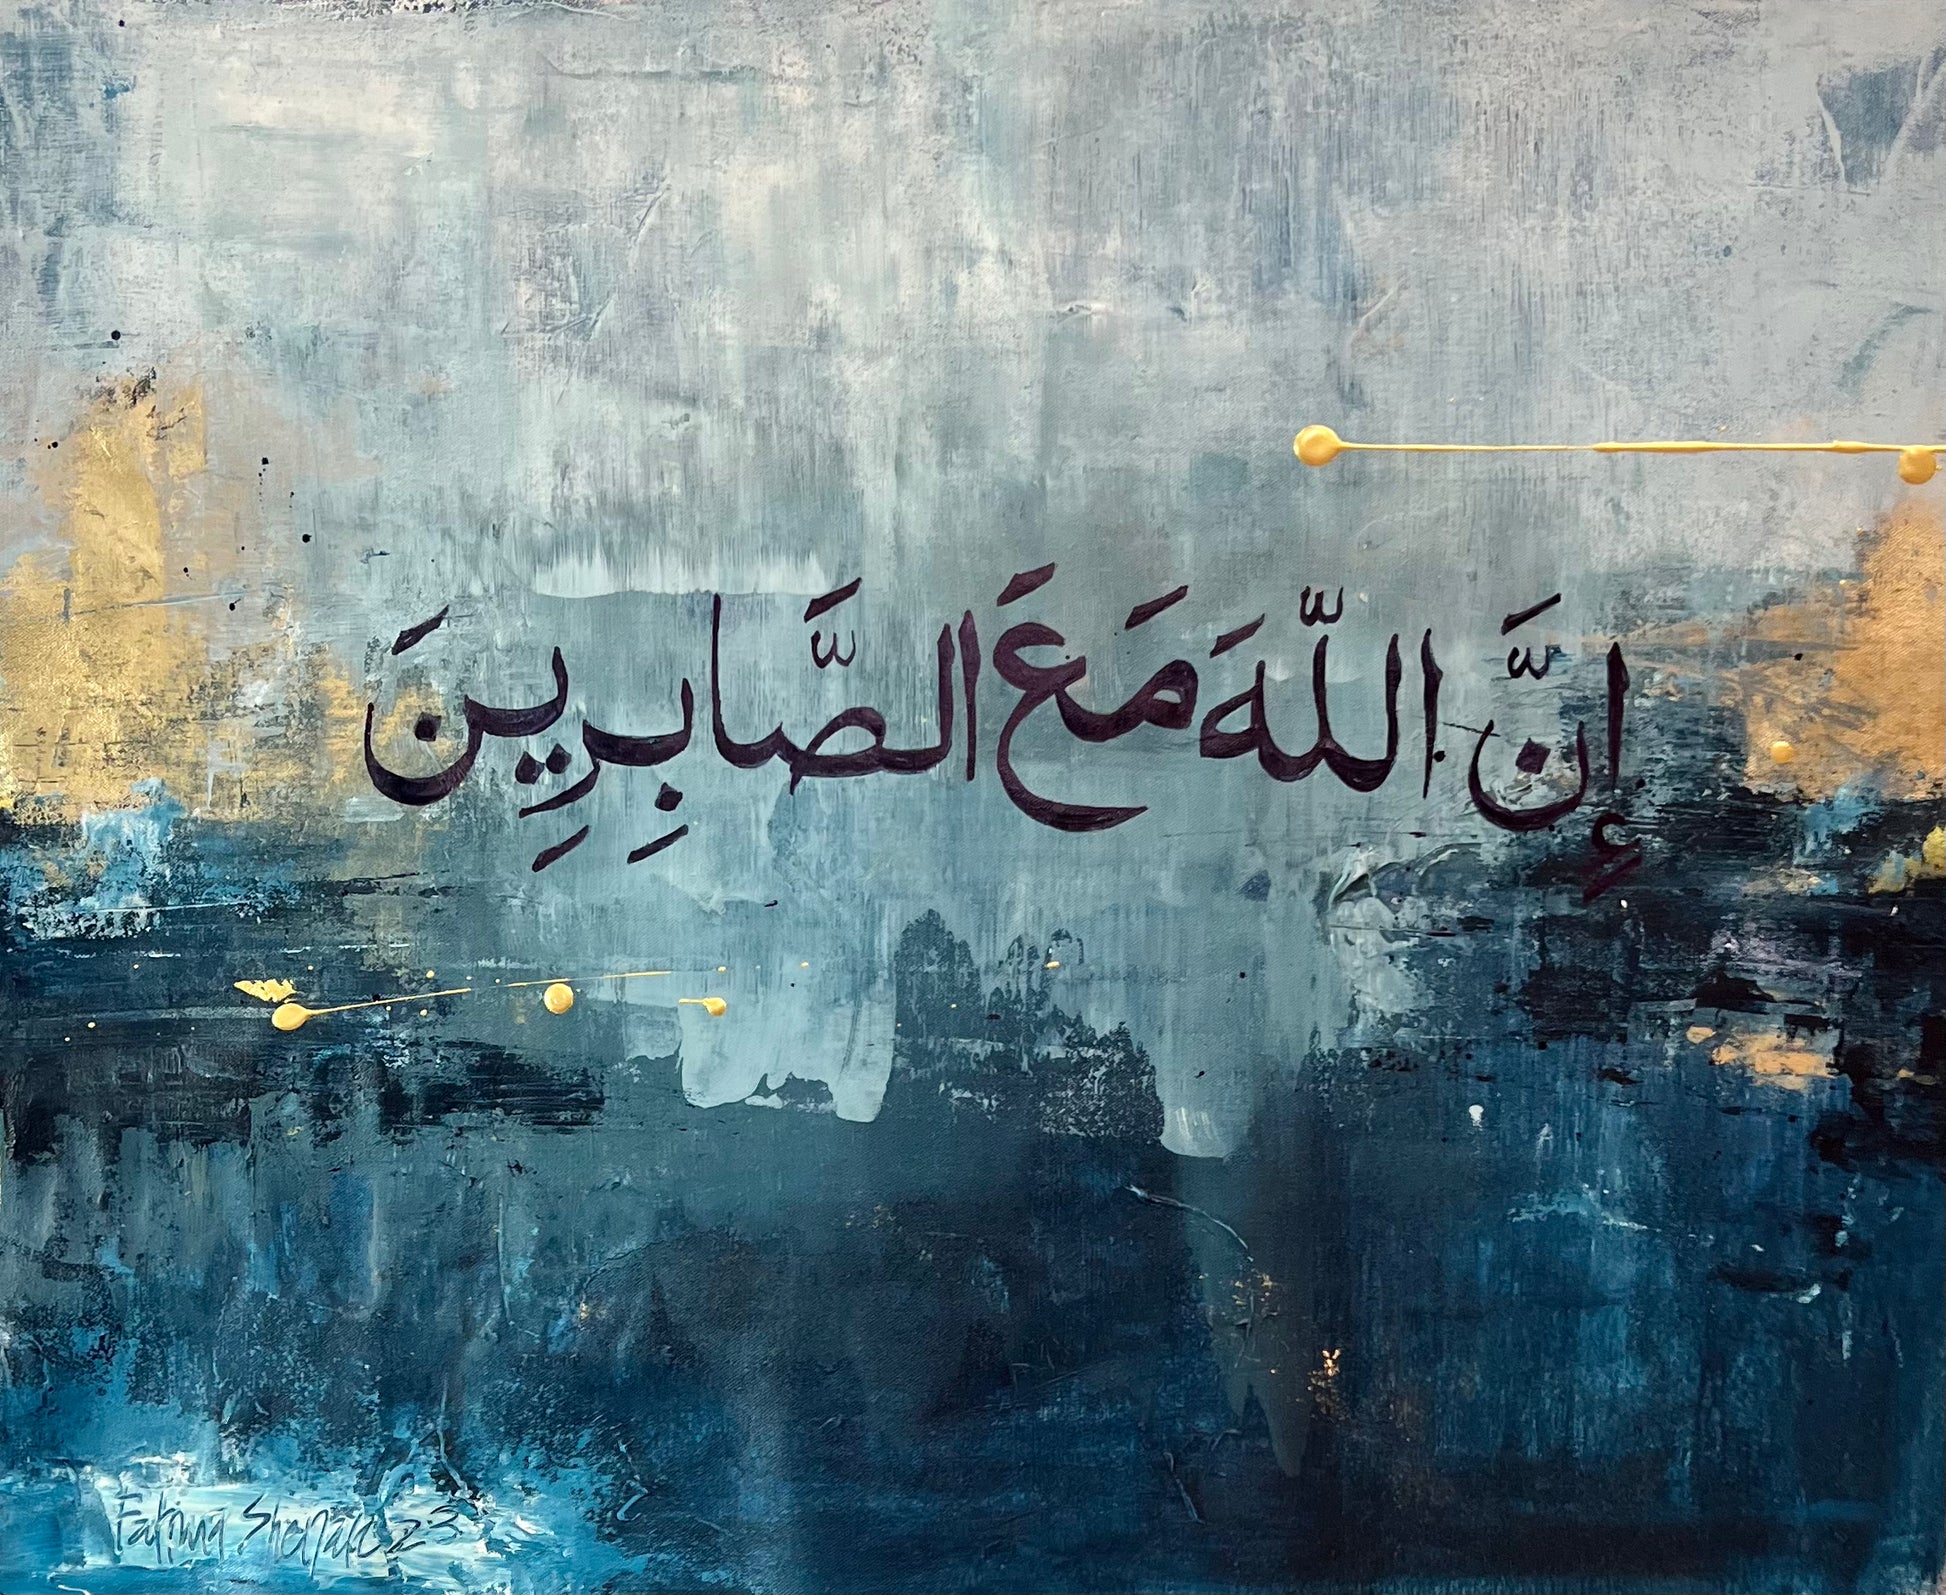 إِنَّ اللّهَ مَعَ الصَّابِرِينَ
Fatima 23